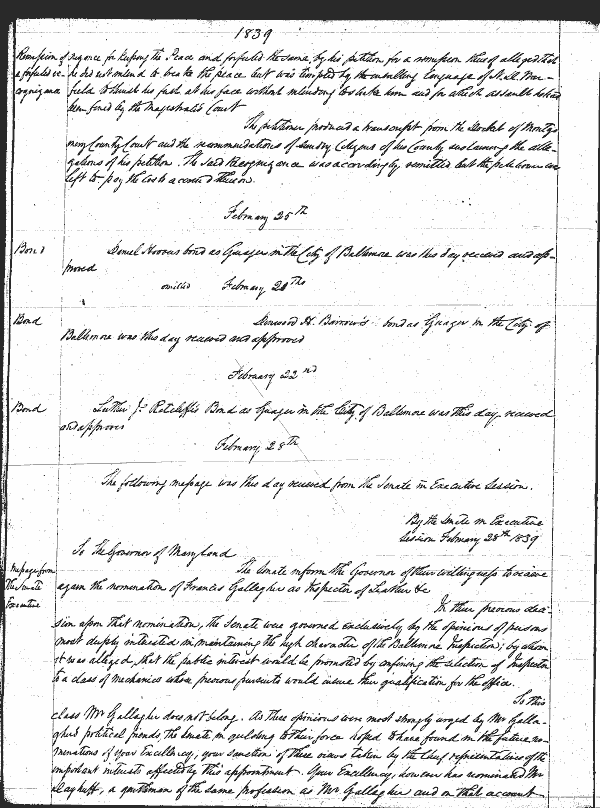 1839
Remission of
a forfeited re-
cognizance
zance for keeping the Peace and forfeited the same, by his petition for a remission thereof alleged that
he did not intend to break the peace but was tempted by the insulting language of
field to thrust his fist at his face without intending to strike him and for which assault he had
been fined by the Magistrate's Court
The petitioner produced a transcript from the Docket of Montgo-
mery County Court and the recommendations of sundry Citizens of his County sustaining the alle-
gations of his petition. The said Recognizance was accordingly remitted but the petitioner was
left to pay the costs accrued thereon.
February 25th
Bond
Daniel Hoover's bond as Guager in the City of Baltimore was this day received and app-
proved
omitted February 20th
Bond
H. Barrow's bond as Guager in the City of
Baltimore was this day received and approved
February 22nd
Bond
Luther J. Ratcliff's Bond as Guager in the City of Baltimore was this day received
and approved
February 28th
The following message was this day received from the Senate in Executive Session.
By the Senate in Executive
Session February 28th 1839
To The Governor of Maryland
Message from
The Senate
Executive
The Senate inform the Governor of their willingness to receive
again the nomination of Francis Gallagher as Inspector of Leather &c
In their previous deci-
sion upon that nomination, the Senate were governed exclusively by the opinions of persons
most deeply interested in maintaining the high character of the Baltimore Inspection; by whom
it was alleged, that the public interest would be promoted by confining the selection of Inspector
to a class of mechanics whose previous pursuits would insure their qualification for the office.
To this
class Mr Gallagher does not belong. As these opinions were most strongly urged by Mr Galla-
gher's political friends, the Senate in yielding to their force hoped to have found in the future no-
minations of your Excellency, your sanction of these views taken by the chief representatives of the
important interests affected by this appointment. Your Excellency, however has nominated Mr
a gentleman of the same profession as Mr Gallagher and on that account